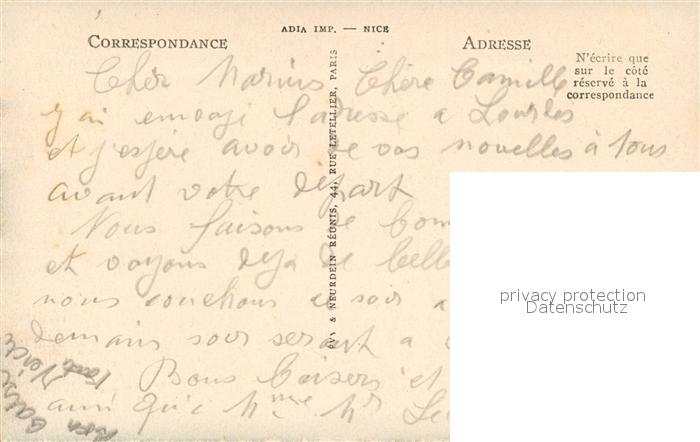 ADIA IMP. — NICE
CORRESPONDANCE
ADRESSE
N'écrire que
sur le côté
réservé à la
correspondance
Chér Marius Chère Camille
J'ai envoyé l'adresse a Lourdes
et j'espère avoir de vos nouvelles à tous
avant votre départ
Nous faisons de bon
et voyons deja de belle
nous couchons ce soir a
demain soir seront a
Bons Baisers et
ainsi qu'a Mme Mr
LÉVY & NEURDEIN RÉUNIS, 44, RUE LETELLIER, PARIS
privacy protection
Datenschutz